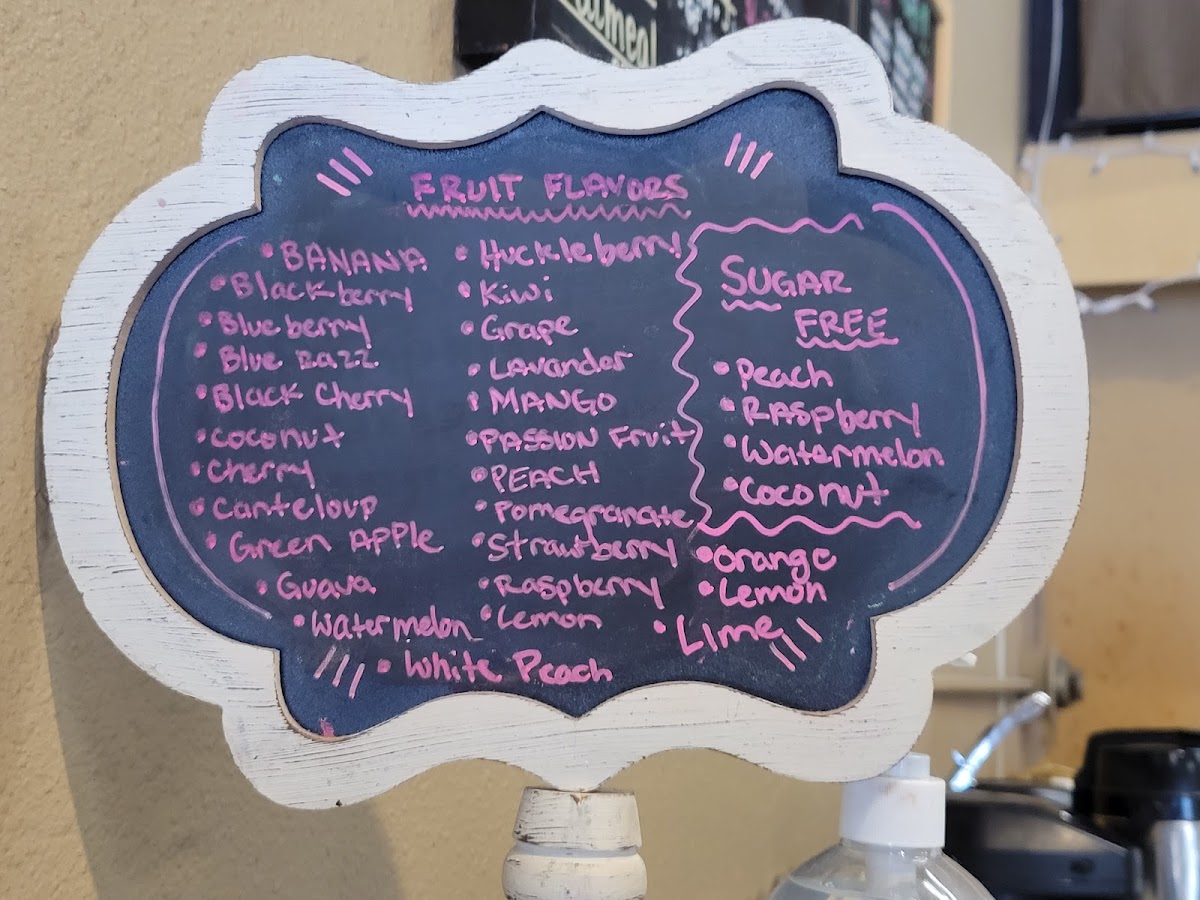 oatmeal
FRUIT FLAVORS
• BANANA
• Blackberry
• Blueberry
• Blue Razz
• Black Cherry
• Coconut
• Cherry
• Canteloup
• Green Apple
• Guava
• Watermelon
• White Peach
• Huckleberry
• Kiwi
• Grape
• Lavander
• MANGO
• PASSION Fruit
• PEACH
• Pomegranate
• Strawberry
• Raspberry
• Lemon
SUGAR
FREE
• Peach
• Raspberry
• Watermelon
• Coconut
• Orange
• Lemon
• Lime